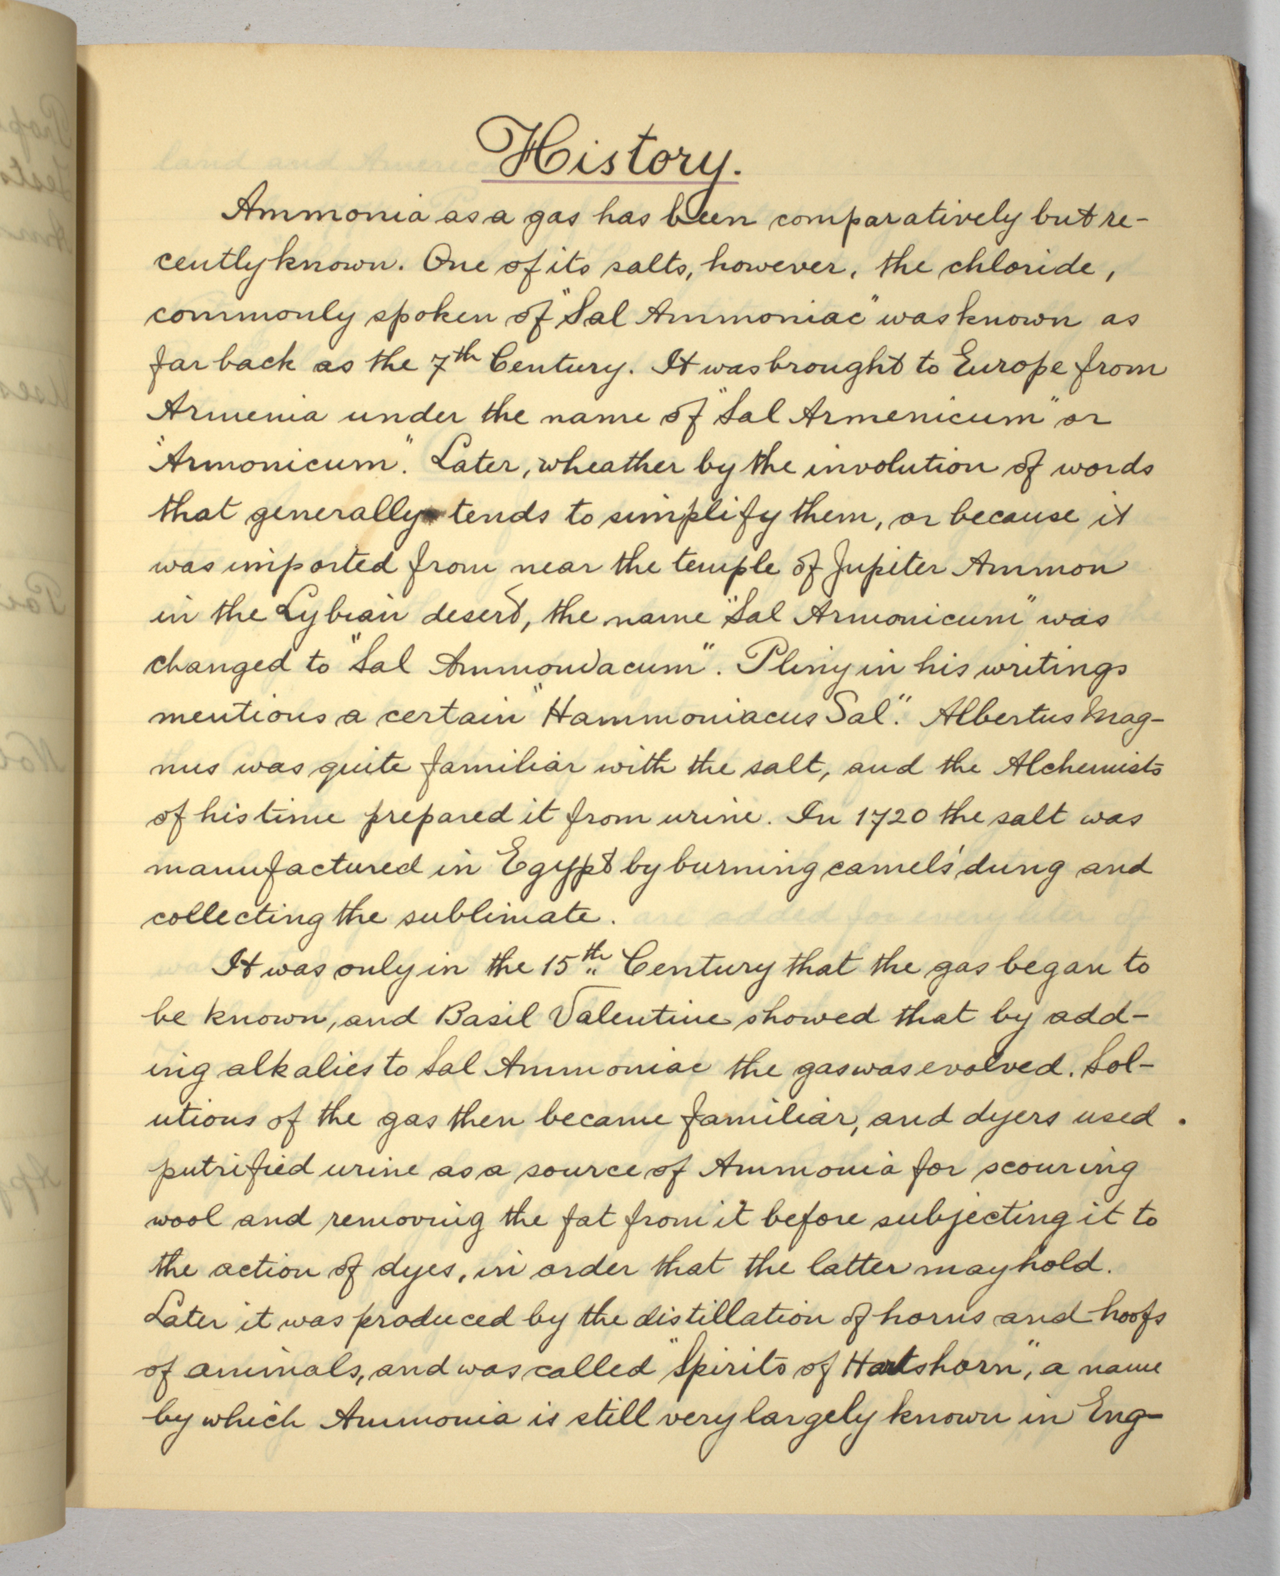 History.
Ammonia as a gas has been comparatively but re-
cently known. One of its salts, however, the chloride,
commonly spoken of "Sal Ammoniac" was known as
far back as the 7th Century. It was brought to Europe from
Armenia under the name of "Sal Armenicum" or
"Armonicum". Later, wheather by the involution of words
that generally tends to simplify them, or because it
was imported from near the temple of Jupiter Ammon
in the Lybian desert, the name "Sal Armonicum" was
changed to "Sal Ammoniacum". Pliny in his writings
mentions a certain "Hammoniacus Sal". Albertus Mag-
nus was quite familiar with the salt, and the Alchemists
of his time prepared it from urine. In 1720 the salt was
manufactured in Egypt by burning camels' dung and
collecting the sublimate.
It was only in the 15th Century that the gas began to
be known, and Basil Valentine showed that by add-
ing alkalies to Sal Ammoniac the gas was evolved. Sol-
utions of the gas then became familiar, and dyers used
putrified urine as a source of Ammonia for scouring
wool and removing the fat from it before subjecting it to
the action of dyes, in order that the latter may hold.
Later it was produced by the distillation of horns and hoofs
of animals, and was called "Spirits of Hartshorn", a name
by which Ammonia is still very largely known in Eng-